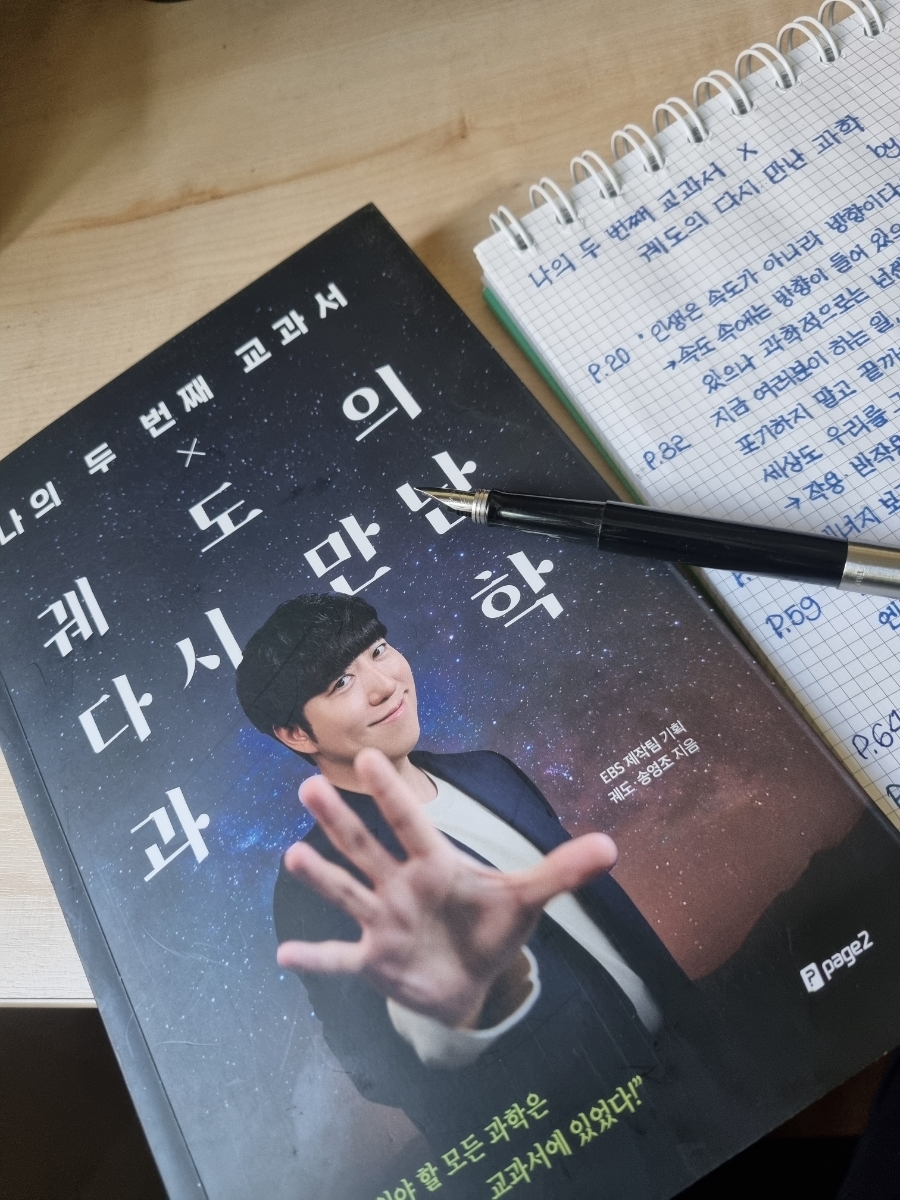 나의 두 번째 교과서
×
궤도의
다시 만난
과학
EBS 제작팀 기획
궤도·송영조 지음
page2
할 모든 과학은
교과서에 있었다!"
나의 두 번째 교과서 ×
궤도의 다시 만난 과학
P.20 · 인생은 속도가 아니라 방향이다
→ 속도 속에는 방향이 들어 있
있으나 과학적으로는
P.32 지금 여러분이 하는 일,
포기하지 말고 끝까
세상도 우리를
→ 작용 반작용
P.59
P.64